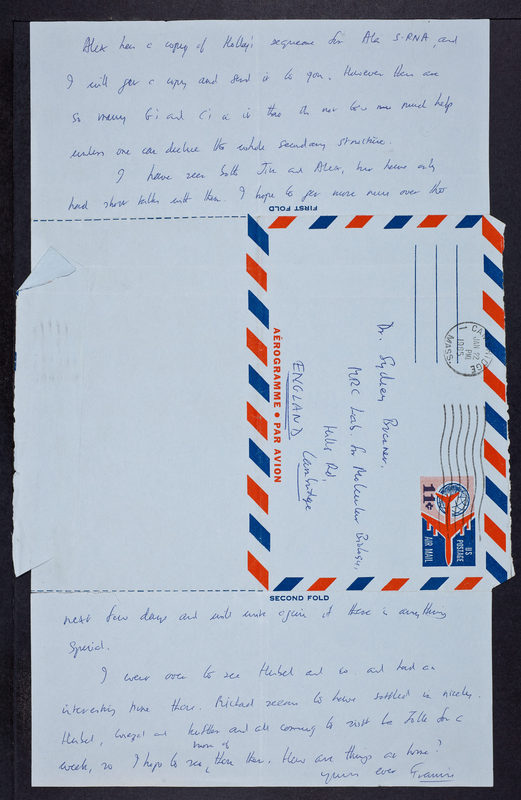 Alex has a copy of Holley's sequence for Ala S-RNA and
I will get a copy and send it to you. However there are
so many G's and C's in it that it may not be much help
unless one can deduce the whole secondary structure.
I have seen both Jim and Alex, but have only
had short talks with them. I hope to get more news over the
FIRST FOLD
AÉROGRAMME • PAR AVION
Dr. Sydney Brenner,
MRC Lab. for Molecular Biology,
Hills Rd,
Cambridge
ENGLAND
CAMBRIDGE
JAN 22
PM
1965
MASS.
1
11¢
US POSTAGE
AIR MAIL
SECOND FOLD
next few days and will write again if there is anything
special.
I went over to see and co. and had an
interesting time there. Richard seems to have settled in nicely.
and are coming to visit the Salk for a
week, so I hope to see more of them then. How are things at home?
yours ever Francis